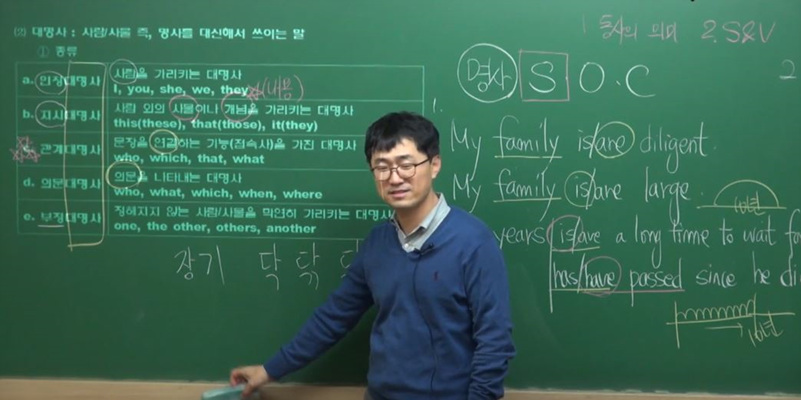 (2) 대명사 : 사람/사물 즉, 명사를 대신해서 쓰이는 말
① 종류
a. 인칭대명사
사람을 가리키는 대명사
I, you, she, we, they
(내용)
b. 지시대명사
사람 외의 사물이나 개념을 가리키는 대명사
this(these), that(those), it(they)
c. 관계대명사
문장을 연결하는 기능(접속사)을 가진 대명사
who, which, that, what
d. 의문대명사
의문을 나타내는 대명사
who, what, which, when, where
e. 부정대명사
정해지지 않는 사람/사물을 막연히 가리키는 대명사
one, the other, others, another
장기 닥 닦
1. 동사의 의미 2. S&V
명사 S O.C
2
1.
My family is/are diligent.
My family is/are large.
10년
years is/are a long time to wait fo
has/have passed since he di
10년